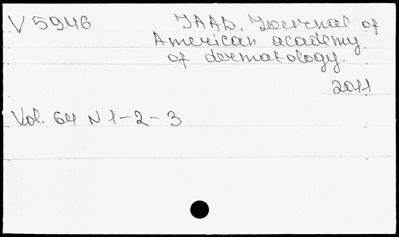 V 5946 JAAD. Journal of
American academy
of dermatology.
2011
Vol. 64 N 1-2-3